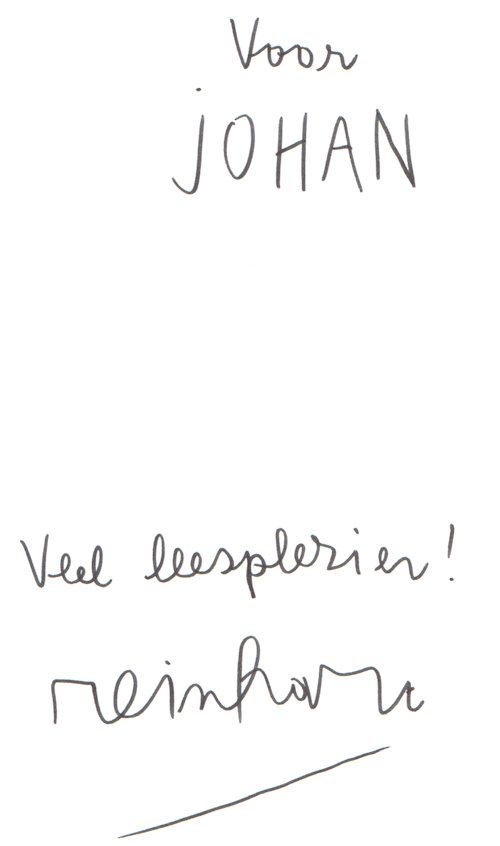 Voor
JOHAN
Veel leesplezier!